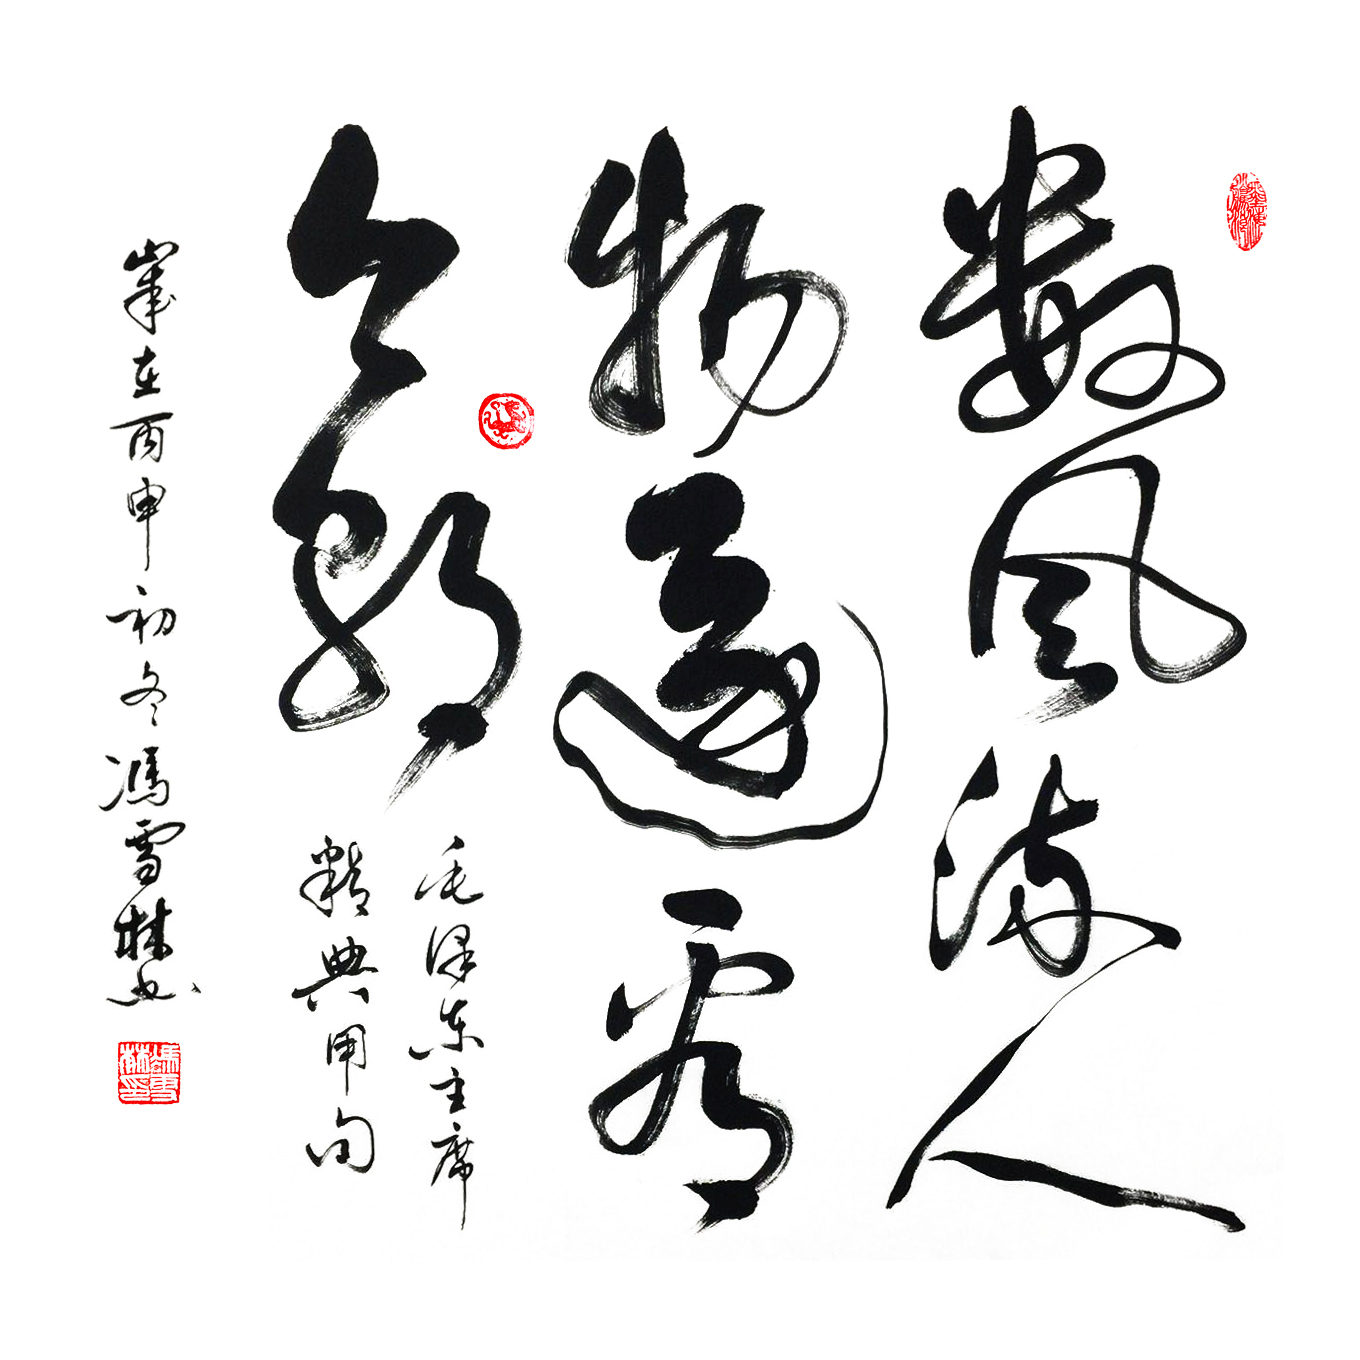 數風流人
物還看
今朝
毛澤東主席
精典用句
歲在丙申初冬馮雪林書
馮雪林印